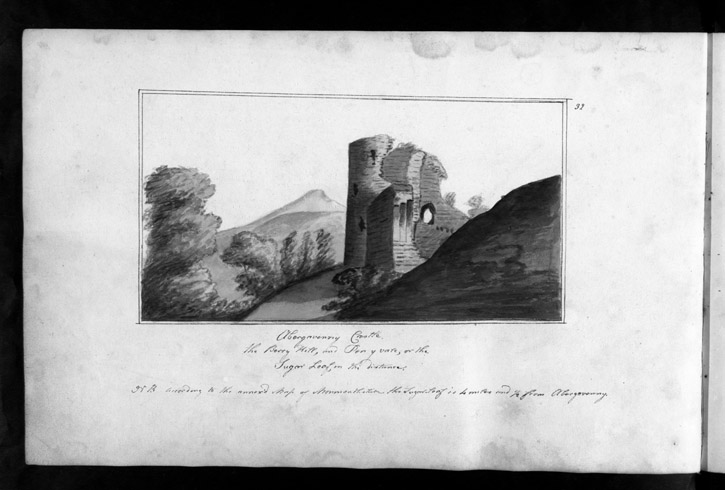 33
Abergavenny Castle
the Berry Hill, and Pen y vale, or the
Sugar Loaf, in the distance.
according to the annexd Map of Monmouthshire the Sugar Loaf is 4 miles and ½ from Abergavenny.